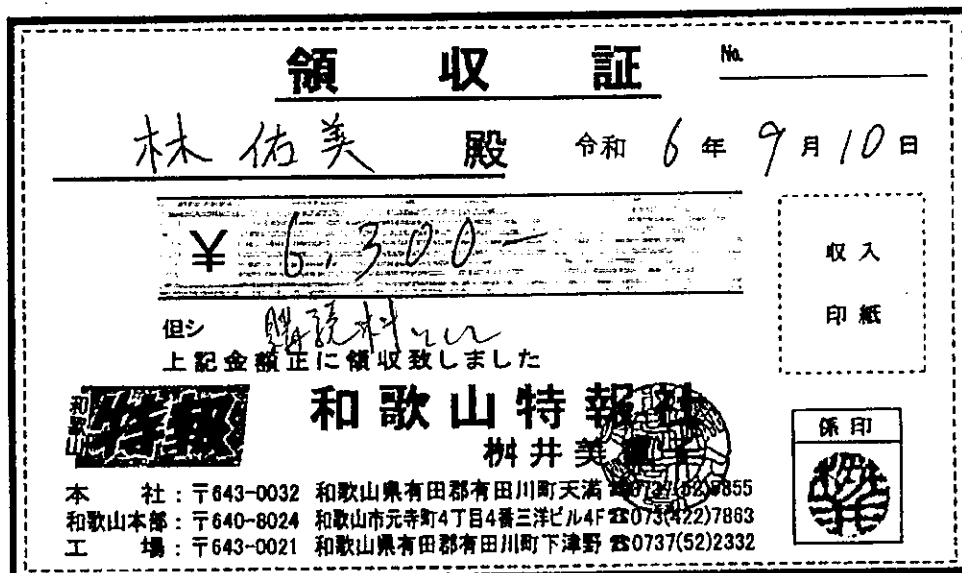 領収証 No.
林 佑美 殿 令和 6 年 9 月 10 日
¥ 6,300-
収入
印紙
但シ 購読料として
上記金額正に領収致しました
和歌山特報
和歌山特報社
桝井美
係印
本社：〒643-0032 和歌山県有田郡有田川町天満
和歌山本部：〒640-8024 和歌山市元寺町4丁目4番三洋ビル4F ☎073(422)7863
工場：〒643-0021 和歌山県有田郡有田川町下津野 ☎0737(52)2332